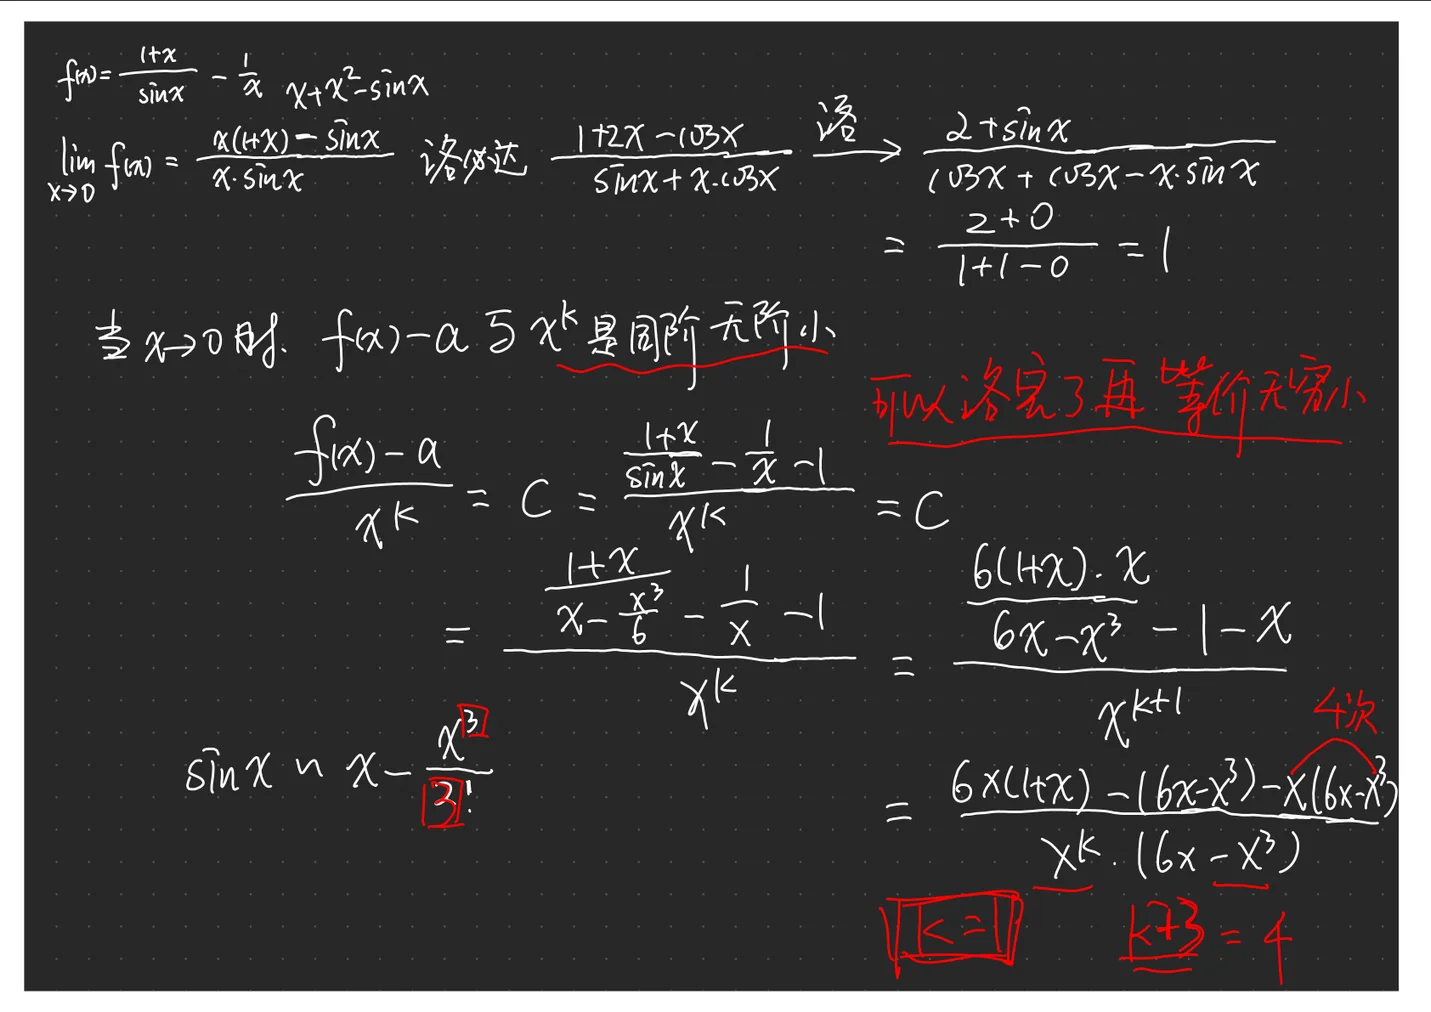 f(x) = \frac{1+x}{\sin x} - \frac{1}{x}  x+x^2-\sin x
\lim_{x→0} f(x) = \frac{x(1+x) - \sin x}{x·\sin x} 洛必达 \frac{1+2x-\cos x}{\sin x + x·\cos x} 洛→ \frac{2+\sin x}{\cos x + \cos x - x·\sin x}
= \frac{2+0}{1+1-0} = 1
当 x→0 时. f(x)-a 与 x^k 是同阶无阶小
可以洛完了再等价无穷小
\frac{f(x)-a}{x^k} = C = \frac{\frac{1+x}{\sin x} - \frac{1}{x} - 1}{x^k} = C
= \frac{\frac{1+x}{x-\frac{x^3}{6}} - \frac{1}{x} - 1}{x^k} = \frac{\frac{6(1+x)·x}{6x-x^3} - 1 - x}{x^{k+1}}
\sin x ~ x - \frac{x^3}{3!}
4次
= \frac{6x(1+x) - (6x-x^3) - x(6x-x^3)}{x^k·(6x-x^3)}
k=1  k+3 = 4